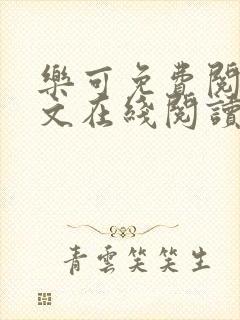 樂可免費閱
文在綫閱讀
青雲笑笑生